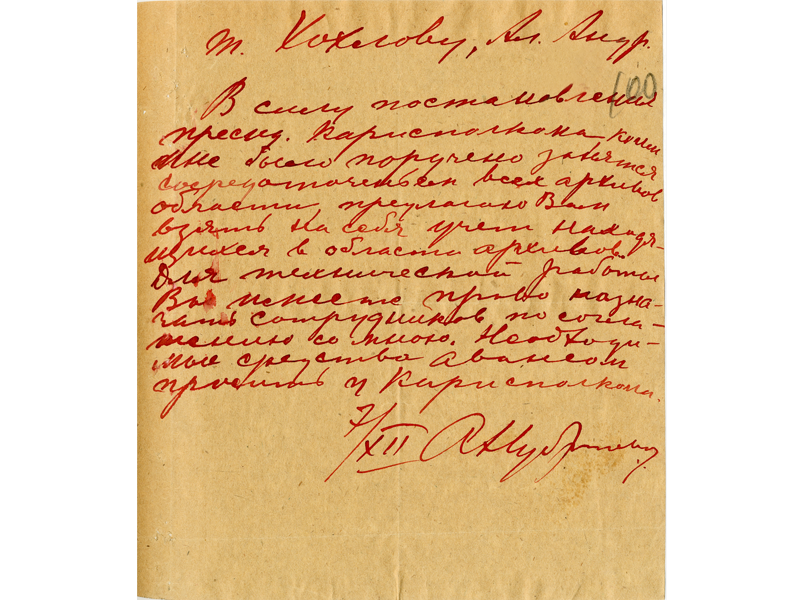 т. Хохлову, Ал. Андр.
100
В силу постановления
през. Карисполкома, коим
мне было поручено заняться
сосредоточением всех архивов
области предлагаю Вам
взять на себя учет находя-
щихся в области архивов.
Для технической работы
Вы имеете право назна-
чать сотрудников по согла-
шению со мною. Необходи-
мые средства авансом
просить у Карисполкома.
7/XII